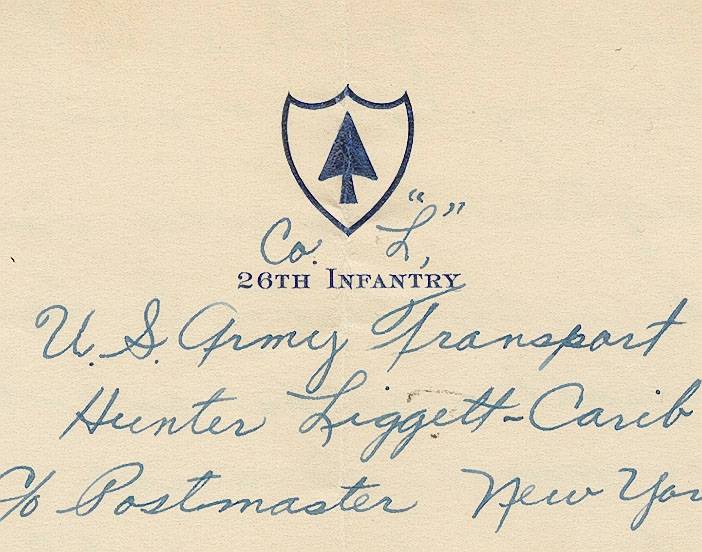 Co. "L",
26TH INFANTRY
U. S. Army Transport
Hunter Liggett-Carib
c/o Postmaster New Yor